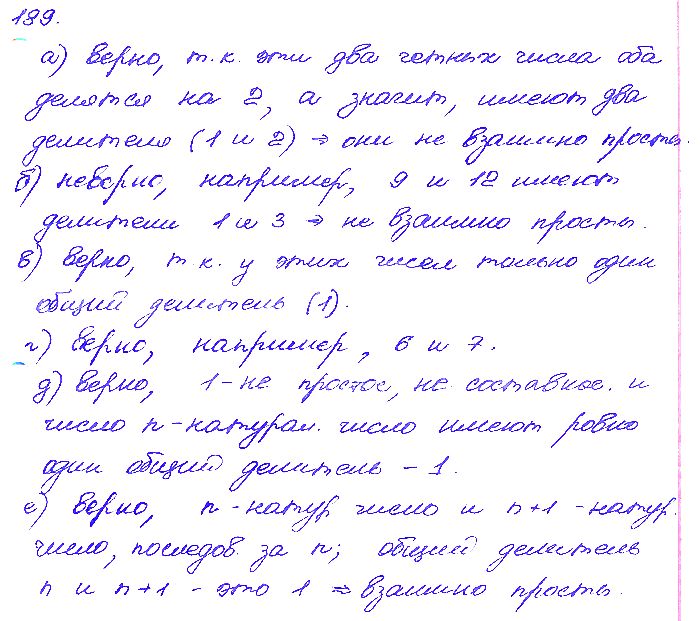 189.
а) верно, т.к. эти два четных числа оба
делятся на 2, а значит, имеют два
делителя (1 и 2) ⇒ они не взаимно просты.
б) неверно, например, 9 и 12 имеют
делители 1 и 3 ⇒ не взаимно просты.
в) верно, т.к. у этих чисел только один
общий делитель (1).
г) верно, например, 6 и 7.
д) верно, 1 - не простое, не составное. и
число n - натурал. число имеют ровно
один общий делитель - 1.
е) верно, n - натур число и n+1 - натур.
число, последов. за n; общий делитель
n и n+1 - это 1 ⇒ взаимно просты.